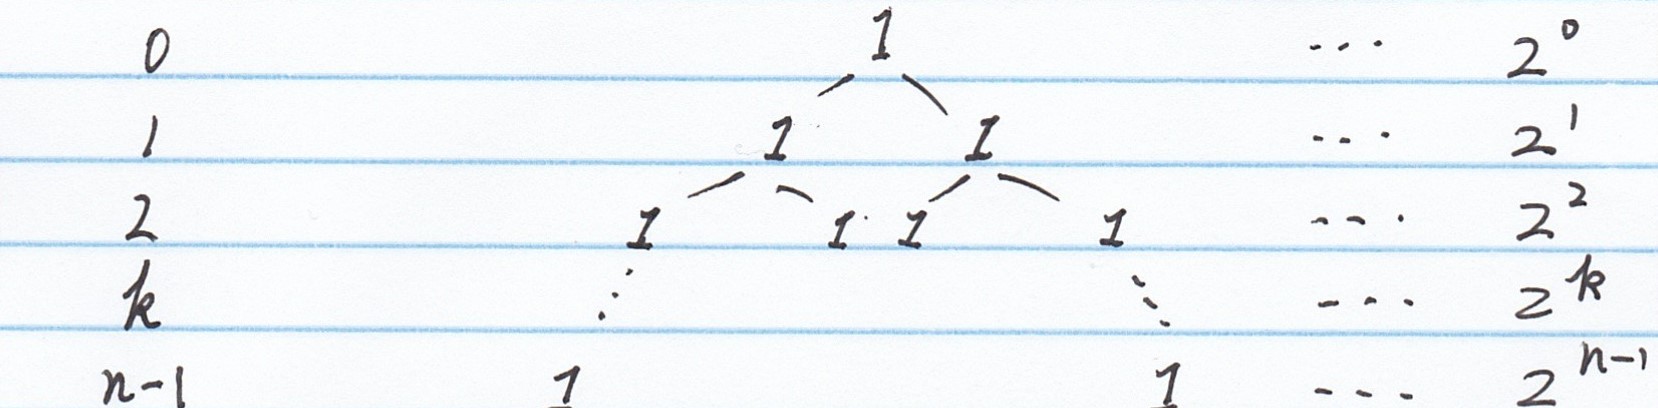 0 1 ... 2^0
1 1 1 ... 2^1
2 1 1 1 1 ... 2^2
k ... 2^k
n-1 1 1 ... 2^n-1